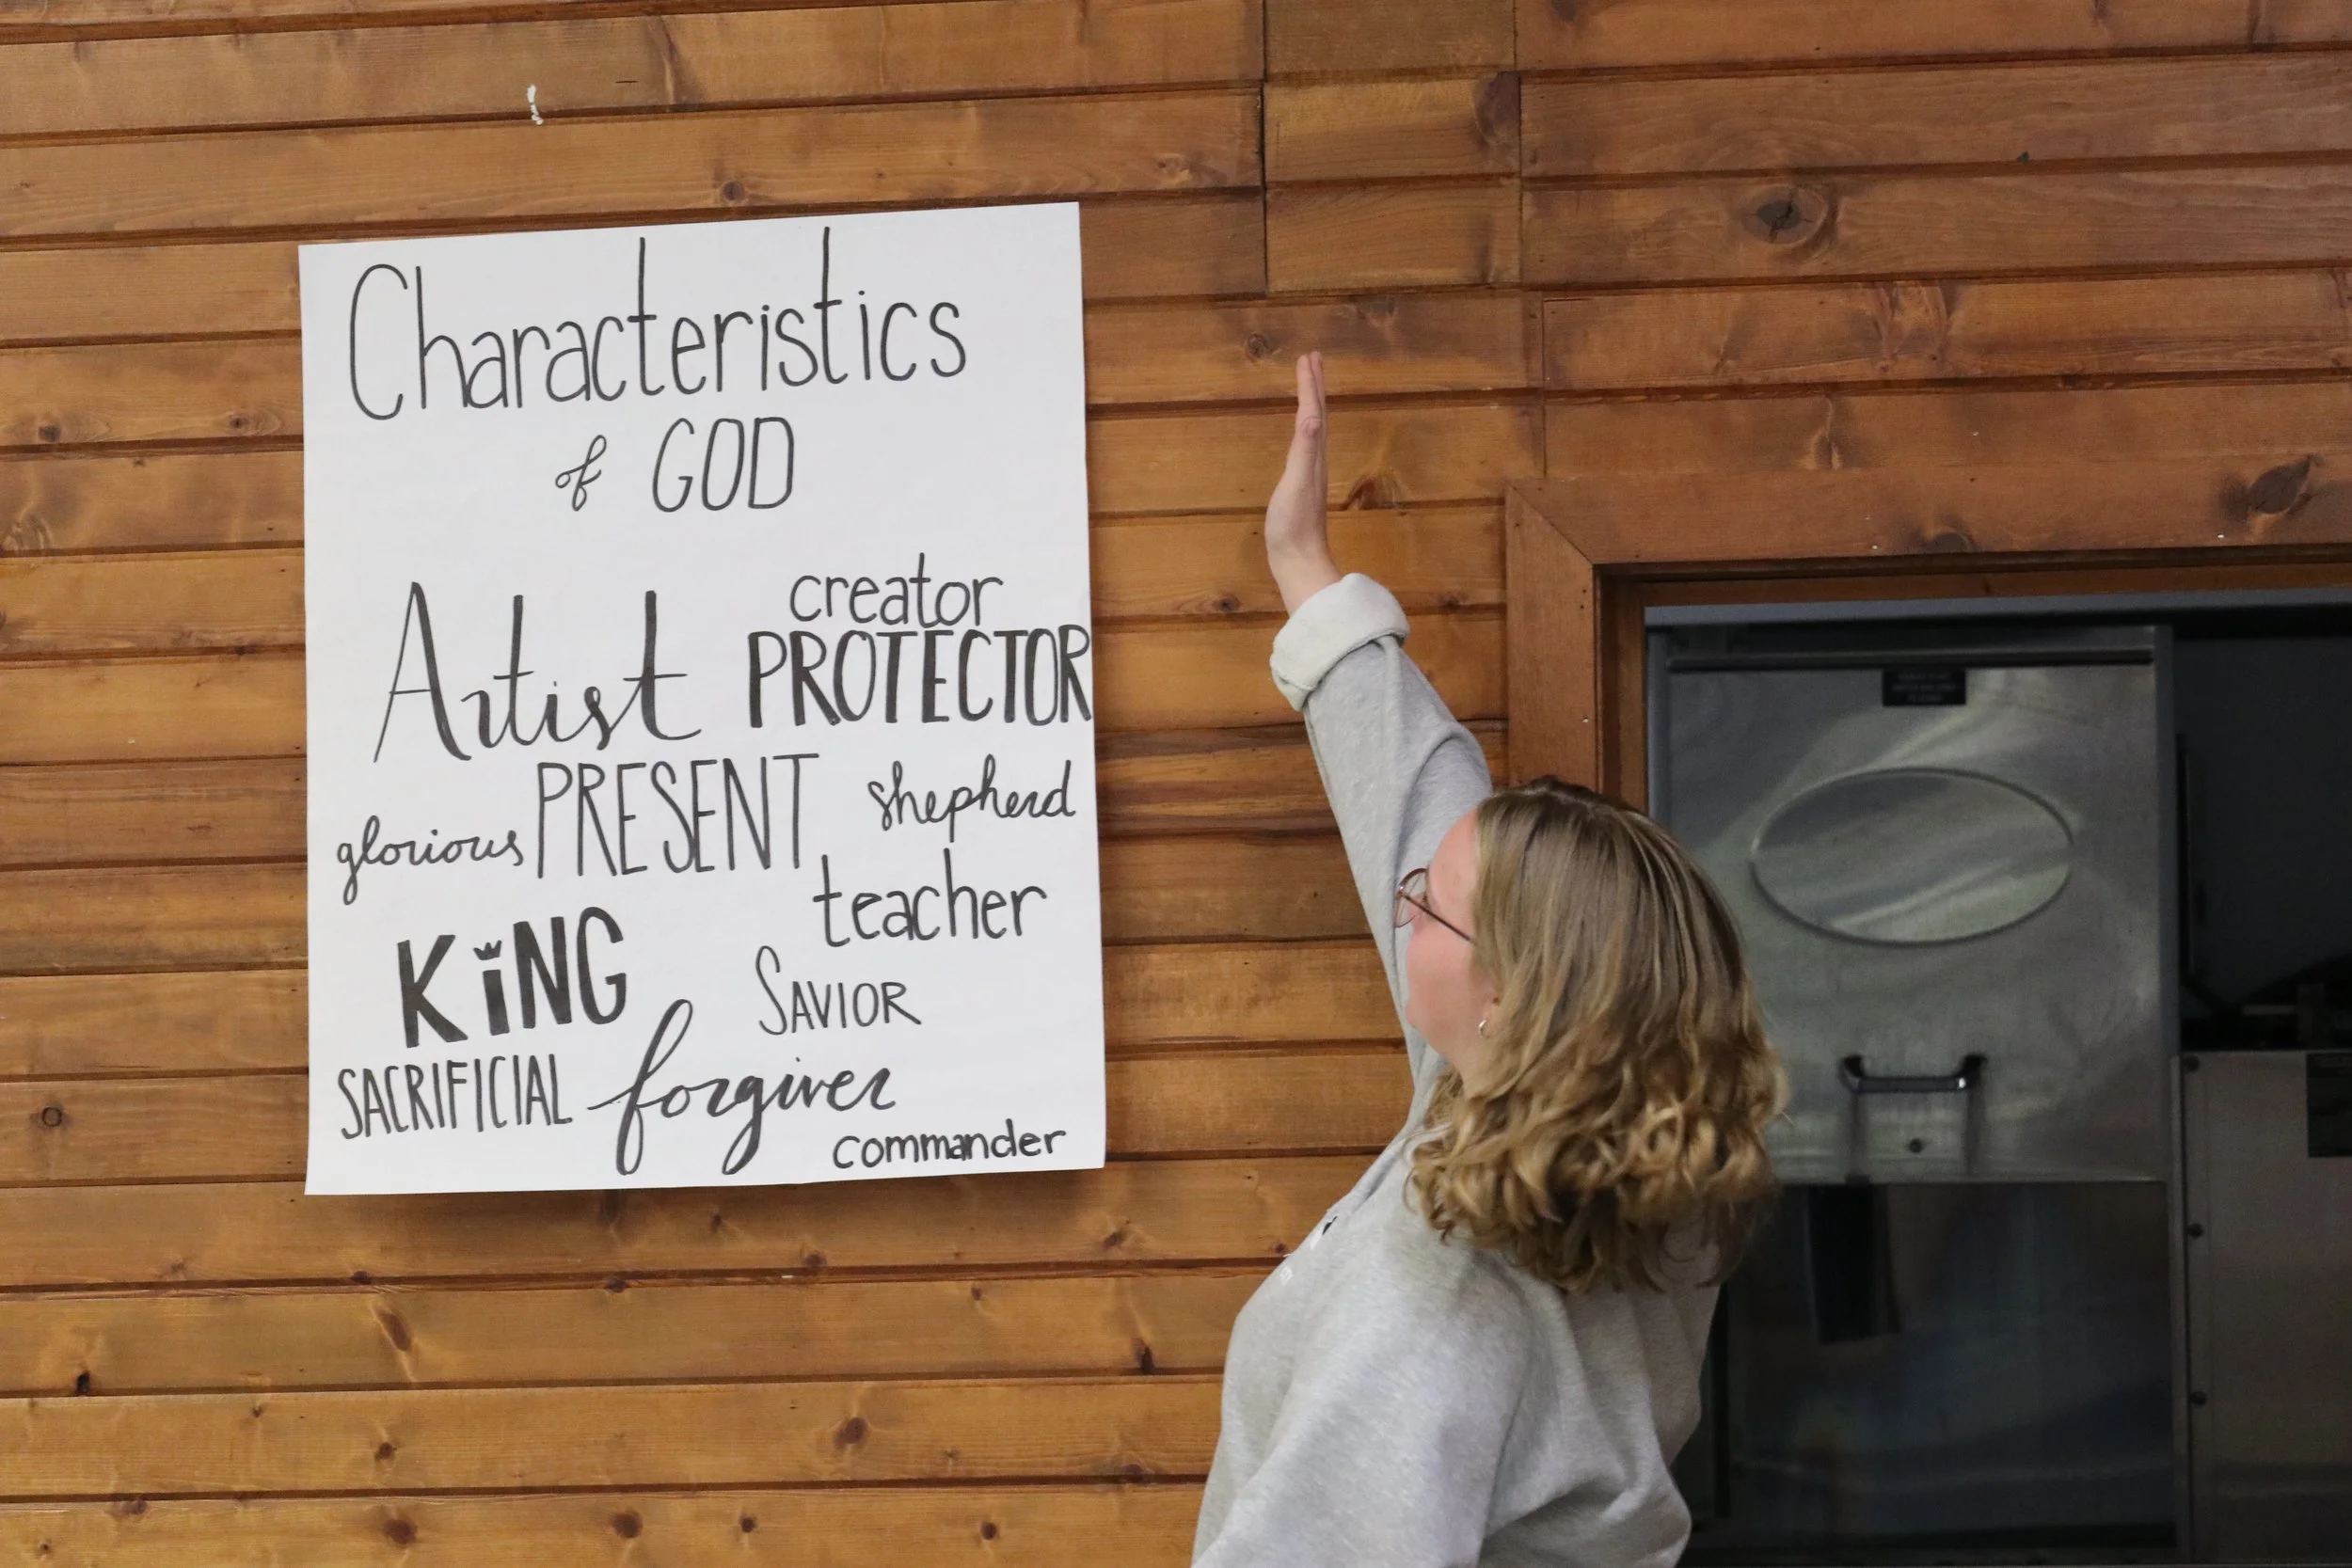 Characteristics
of GOD
creator
Artist PROTECTOR
glorious PRESENT shepherd
teacher
KiNG SAVIOR
SACRIFICIAL forgiver
commander